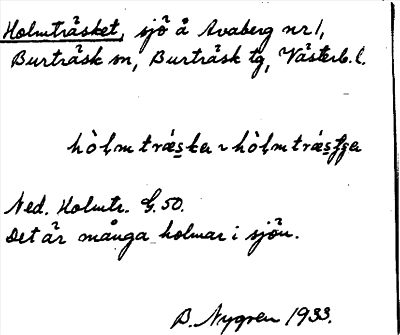 Holmträsket, sjö å Avaberg nr 1,
Burträsk sn, Burträsk tg, Västerb. l.
hòl̥mtræ̀ska ~ hòl̥mtræ̀sʈʂa
Ned. Holmtr. G. 50.
Det är många holmar i sjön.
B. Nygren 1933.